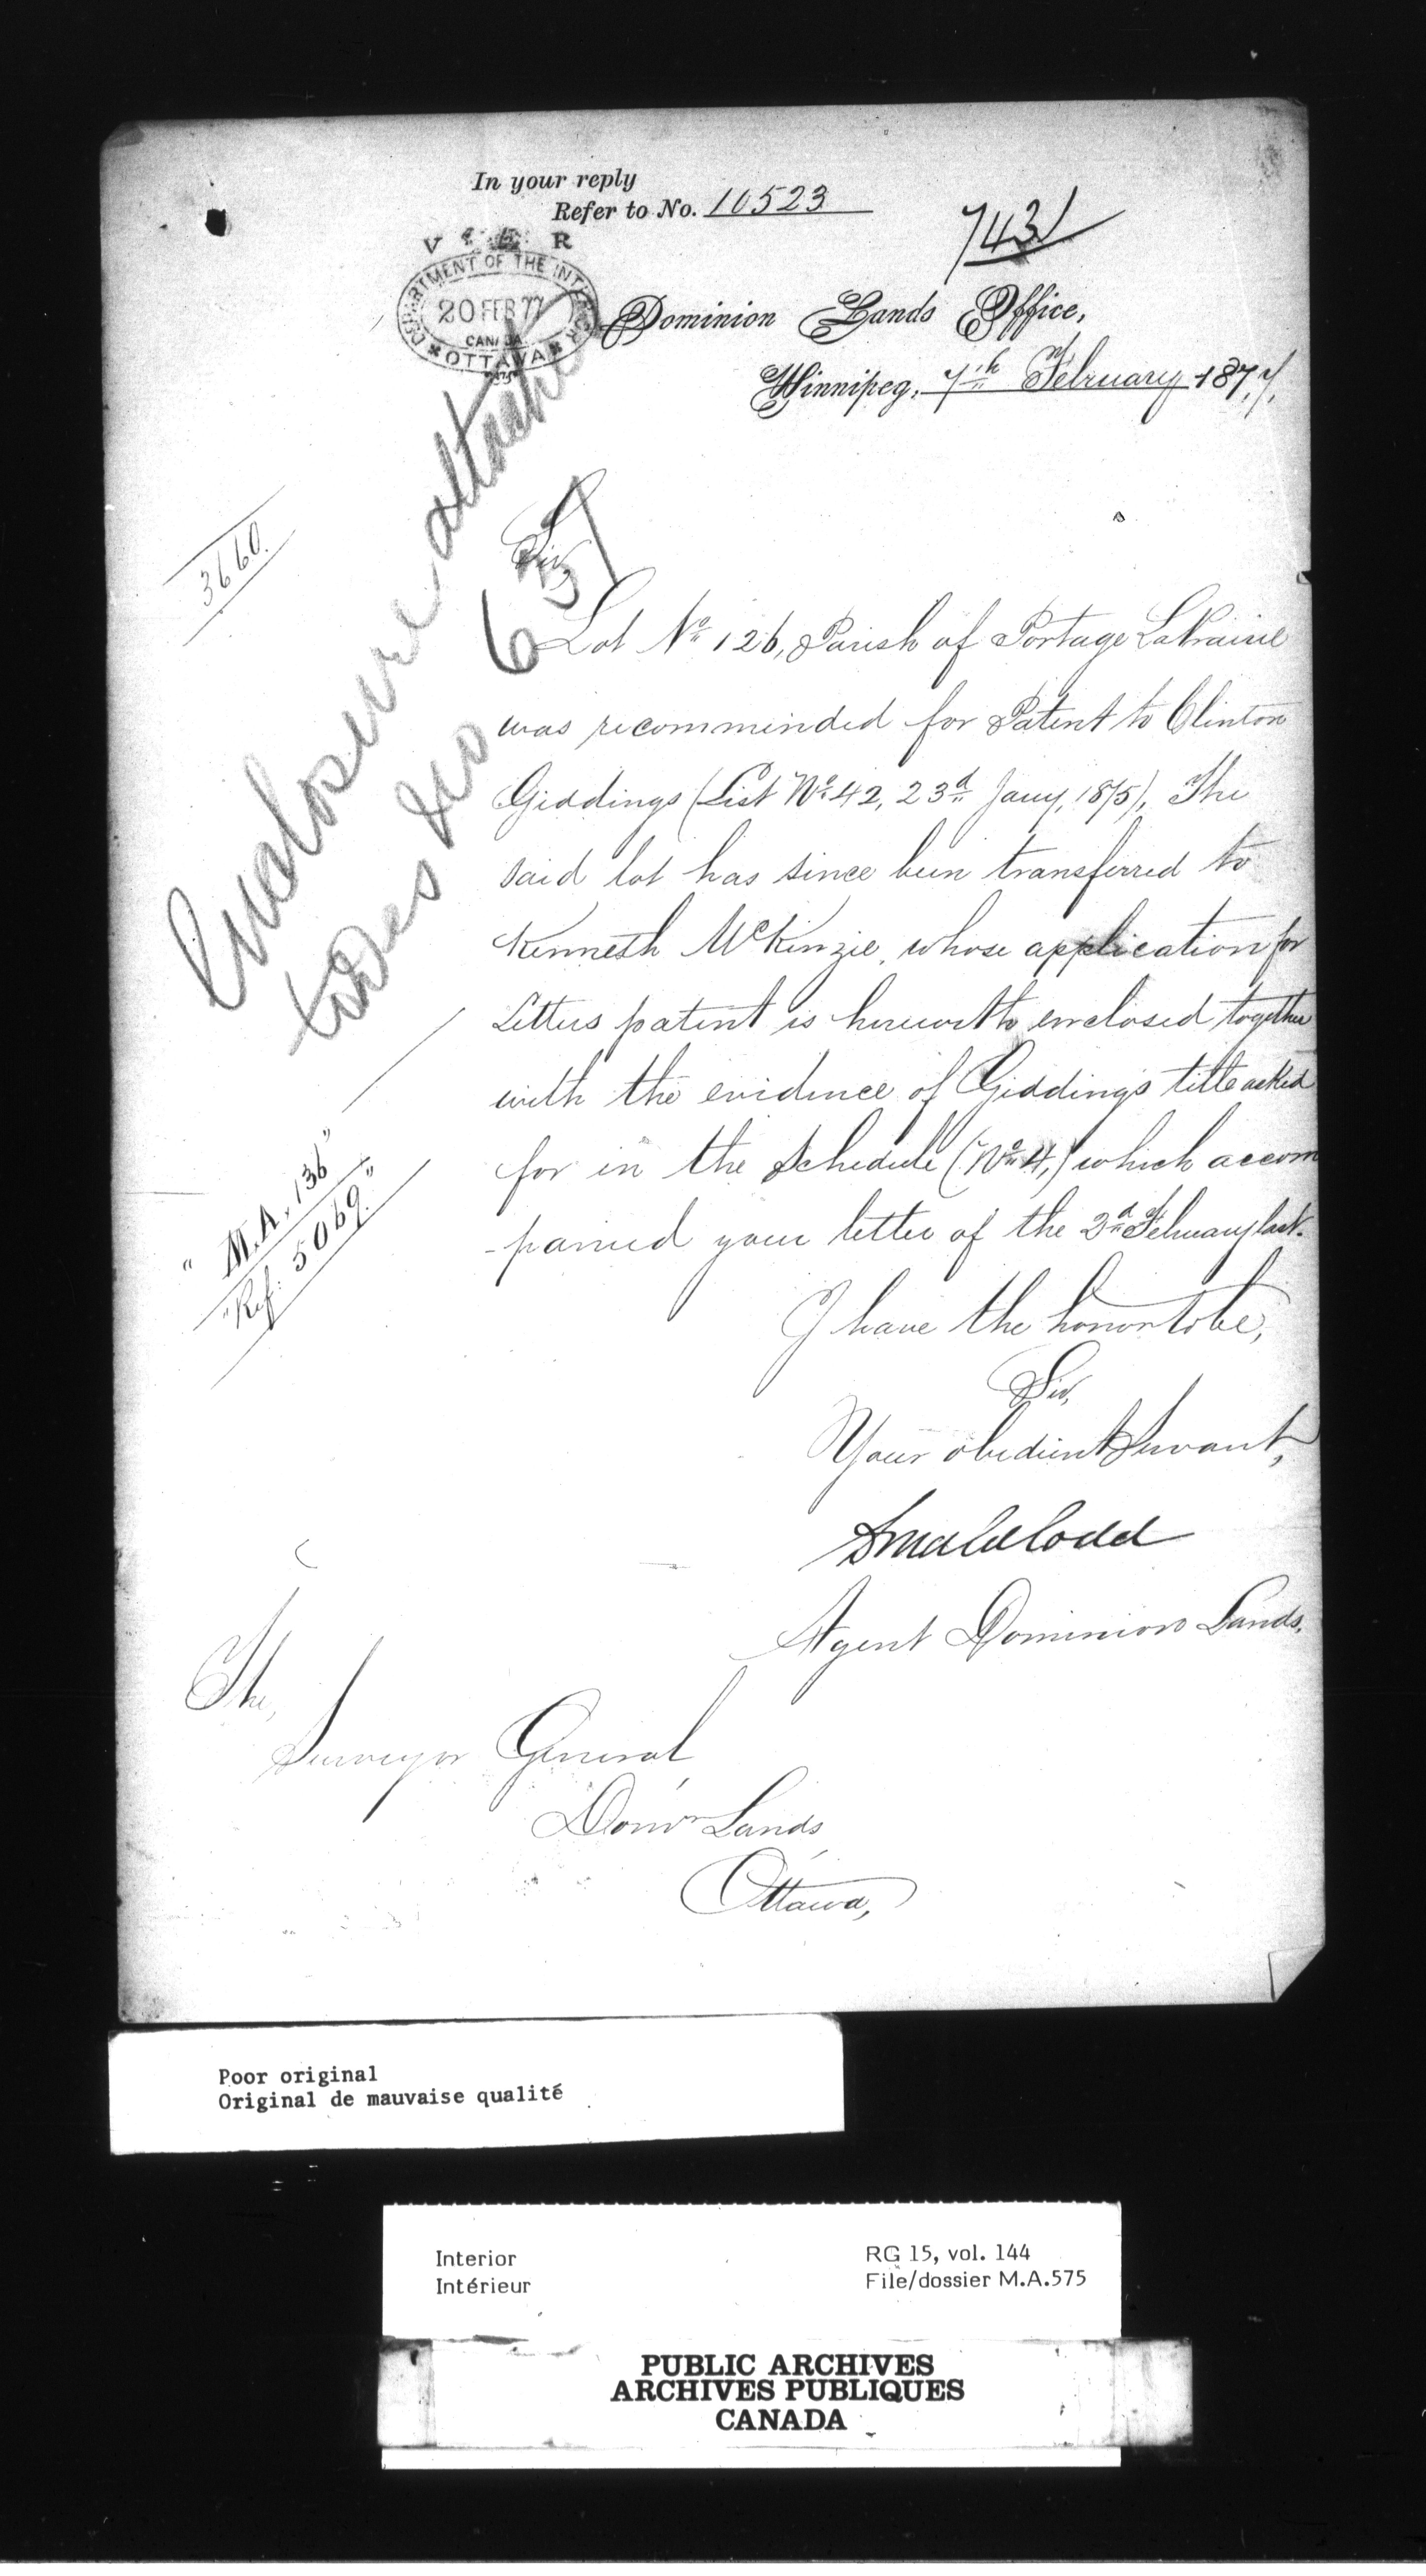 In your reply
Refer to No. 10523
7431
V R
DEPARTMENT OF THE INTERIOR
20 FEB 77
CANADA
OTTAWA
Dominion Lands Office,
Winnipeg, 7th February 1877,
Enclosure attached
to Des
657
3660.
Sir,
Lot No 126, Parish of Portage LaPrairie
was recommended for Patent to Clinton
Giddings (List No 42, 23d Jany, 1875). The
said lot has since been transferred to
Kenneth McKinzie, whose application for
Letters patent is herewith enclosed together
with the evidence of Giddings title asked
for in the Schedule (No 4,) which accom
-panied your letter of the 2d February last.
"M.A. 136"
"Ref: 5069."
I have the honor to be,
Sir,
Your obedient Servant,
Codd
Agent Dominion Lands.
The,
Surveyor General
Domn Lands
Ottawa,
Poor original
Original de mauvaise qualité
Interior
Intérieur
RG 15, vol. 144
File/dossier M.A.575
PUBLIC ARCHIVES
ARCHIVES PUBLIQUES
CANADA